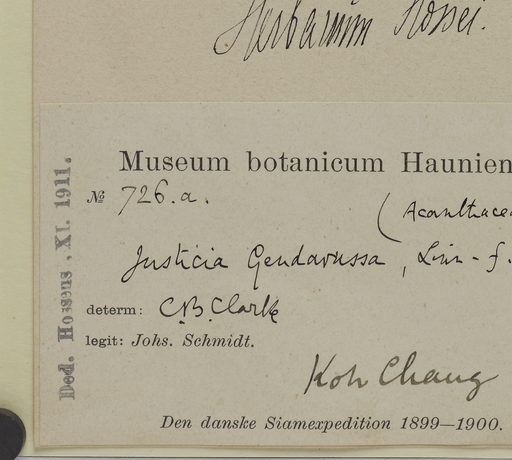 Herbarium Hossei.
Museum botanicum Haunien
№ 726.a.
(Acanthace
Justicia Gendarussa, Linn-f.
determ: C.B. Clarke
legit: Johs. Schmidt.
Koh Chang
Den danske Siamexpedition 1899—1900.
Ded. Hosseus, XI. 1911.